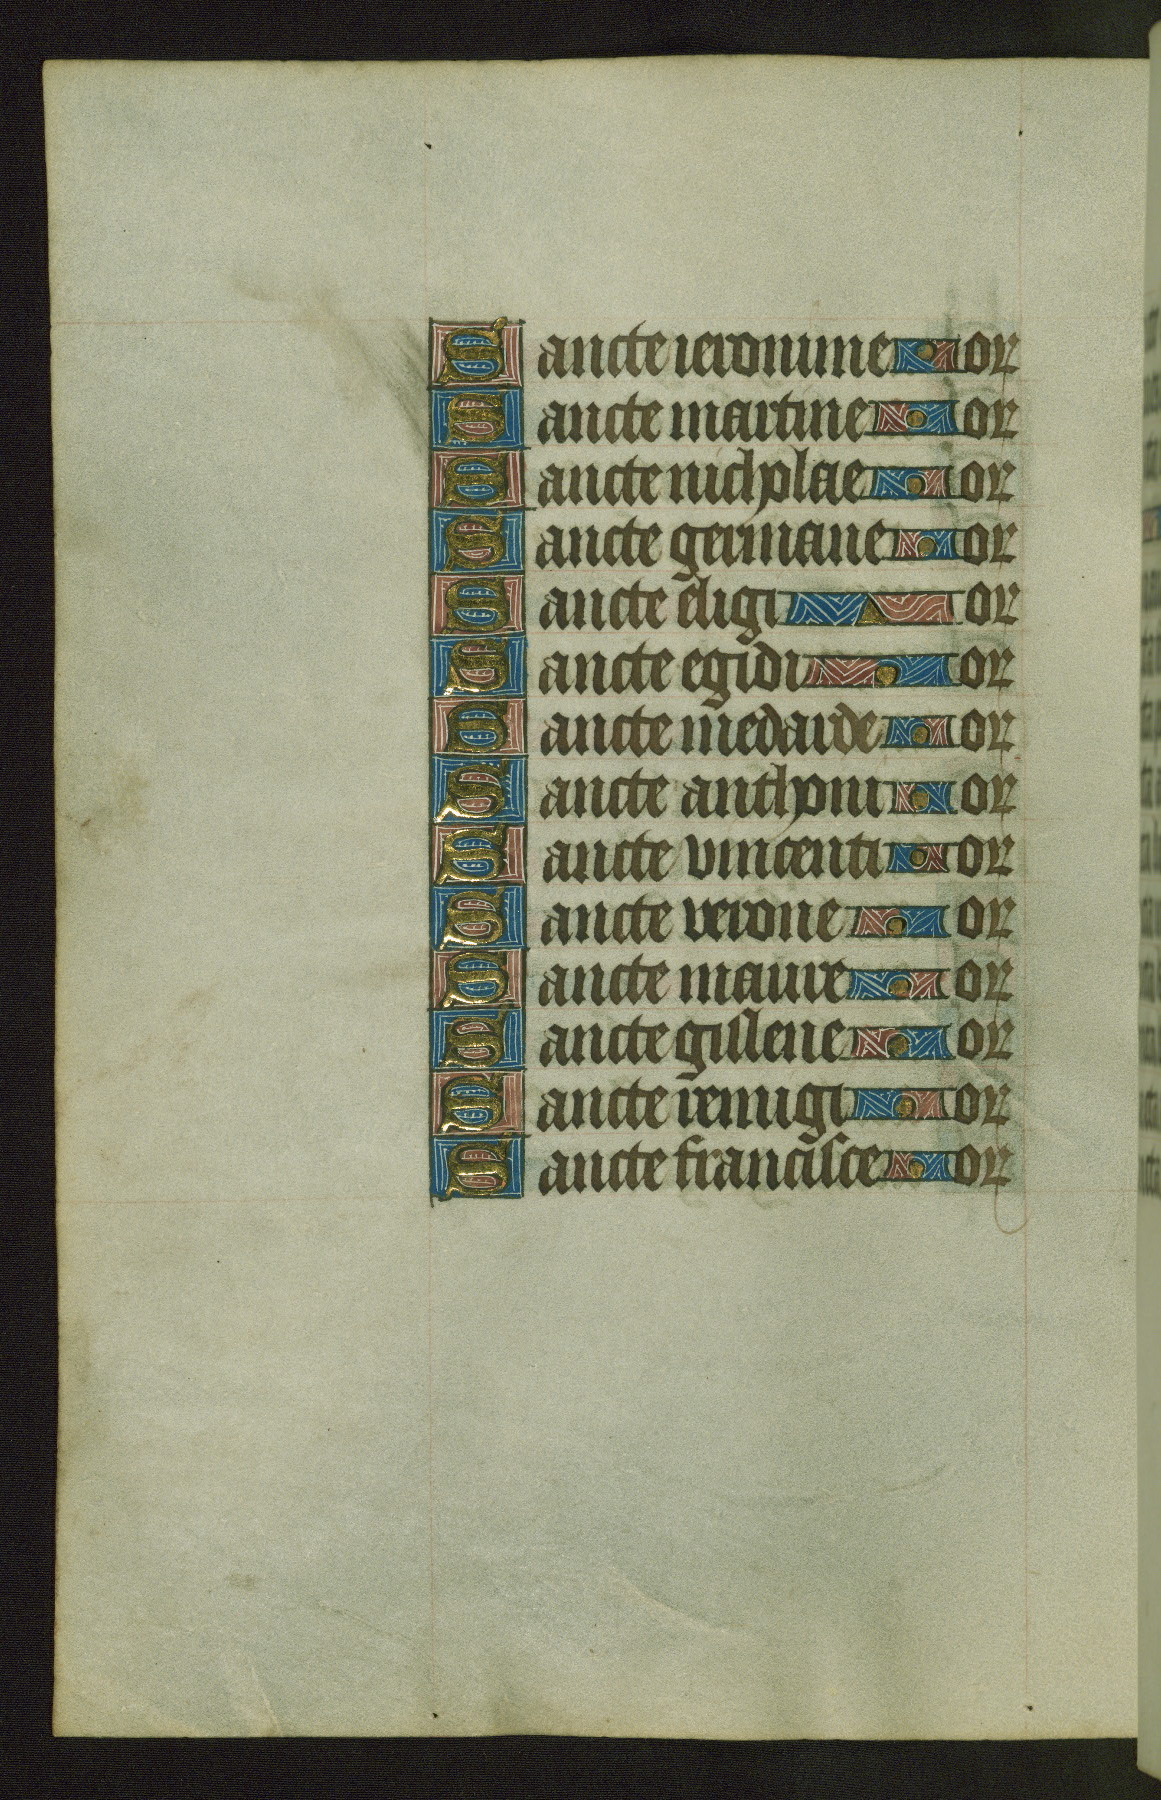 Sancte ieronime or
Sancte martine or
Sancte nicholae or
Sancte germane or
Sancte eligi or
Sancte egidi or
Sancte medarde or
Sancte anthoni or
Sancte vincenti or
Sancte verone or
Sancte maure or
Sancte gillene or
Sancte remigi or
Sancte francisce or